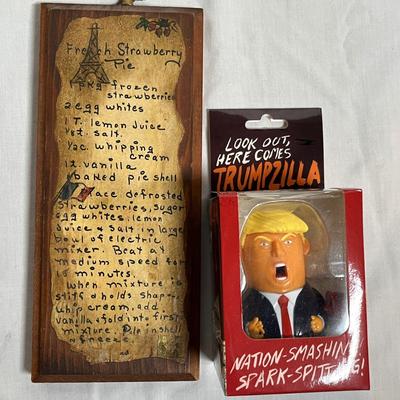 French Strawberry
Pie
1 pkg frozen
strawberries
2 egg whites
1 T. lemon Juice
salt.
whipping
cream
1 t. vanilla
1 baked pie shell
defrosted
strawberries, sugar
egg whites, lemon
Juice & Salt in large
bowl of electric
mixer. Beat at
medium speed for
15 minutes.
When mixture is
stiff & holds shape
whip cream, add
vanilla & fold into first
mixture. Pile in shell
& freeze.
LOOK OUT,
HERE COMES
TRUMPZILLA
NATION-SMASHIN
SPARK-SPITTING!